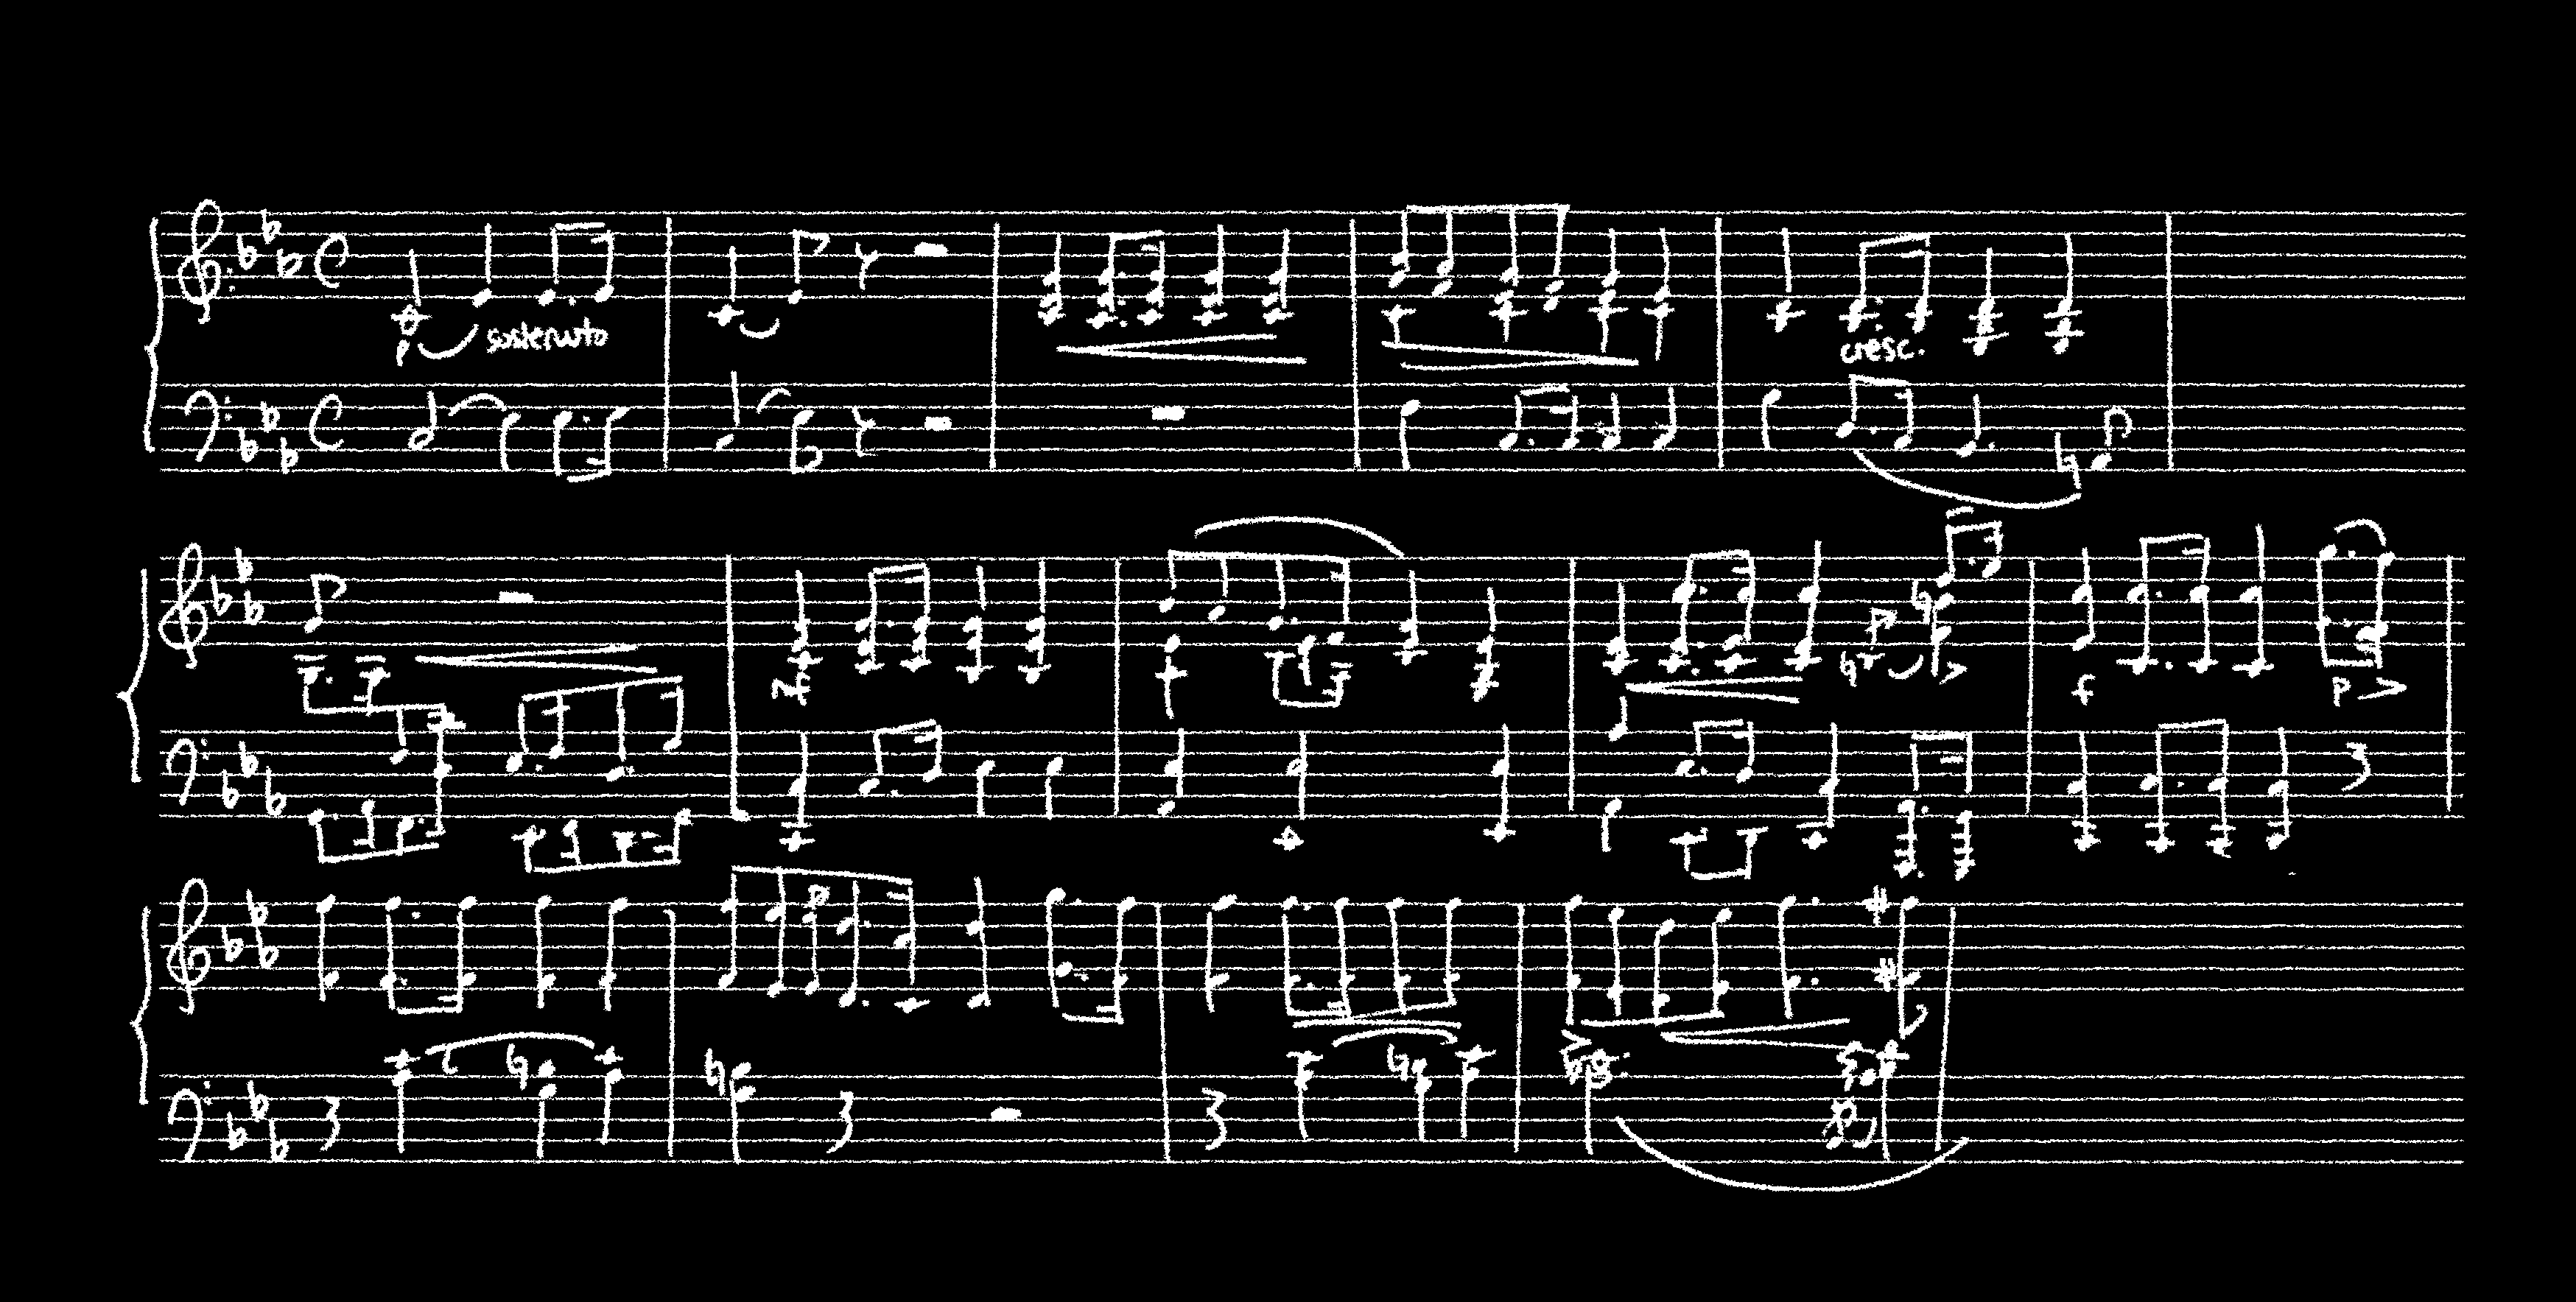 p sostenuto
cresc.
p
mf f p
p